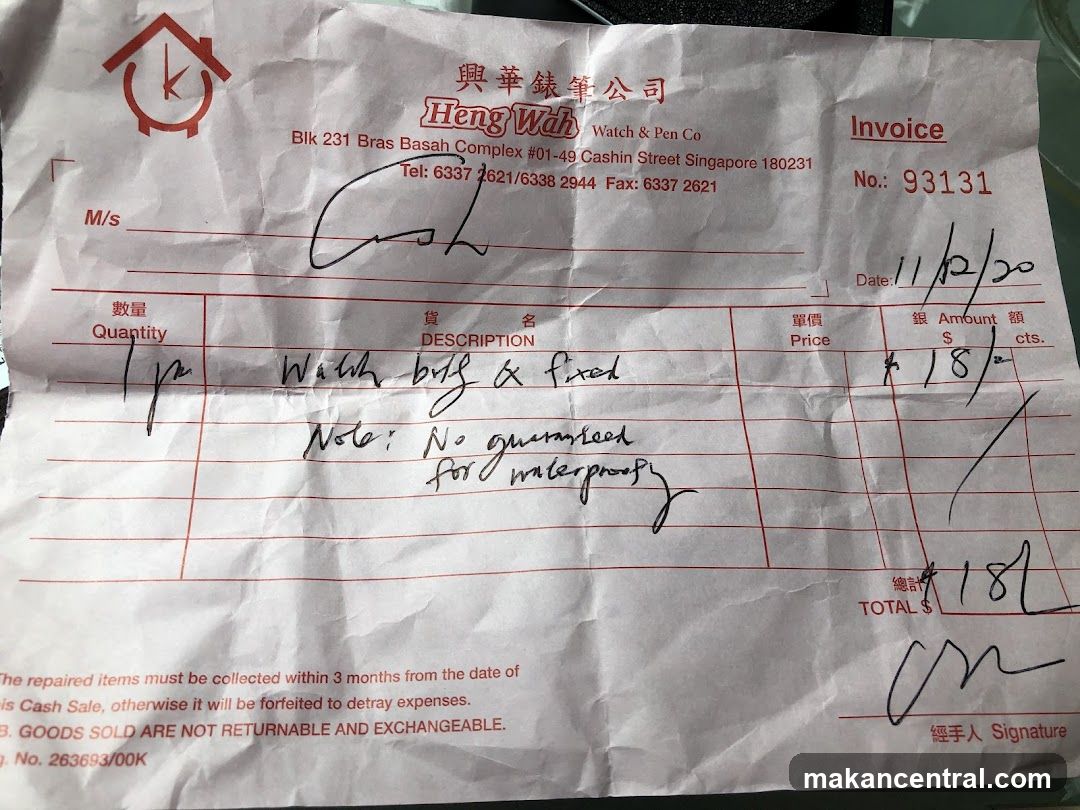 興華錶筆公司
Heng Wah Watch & Pen Co
Invoice
Blk 231 Bras Basah Complex #01-49 Cashin Street Singapore 180231
Tel: 6337 2621/6338 2944 Fax: 6337 2621
No.: 93131
M/s Cash
Date: 11/12/20
數量 貨名 單價 銀 Amount 額
Quantity DESCRIPTION Price $ cts.
1 pc Watch & fixed $ 18/-
Note: No guaranteed
for waterproofy
總計
TOTAL $ $ 18/
The repaired items must be collected within 3 months from the date of
is Cash Sale, otherwise it will be forfeited to detray expenses.
B. GOODS SOLD ARE NOT RETURNABLE AND EXCHANGEABLE.
g. No. 263693/00K
經手人 Signature
makancentral.com